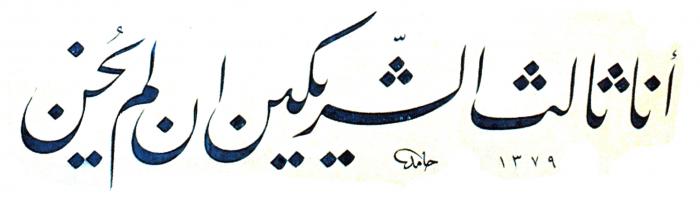 أنا ثالث الشّريكين ان لم يُخن
حامد ١٣٧٩